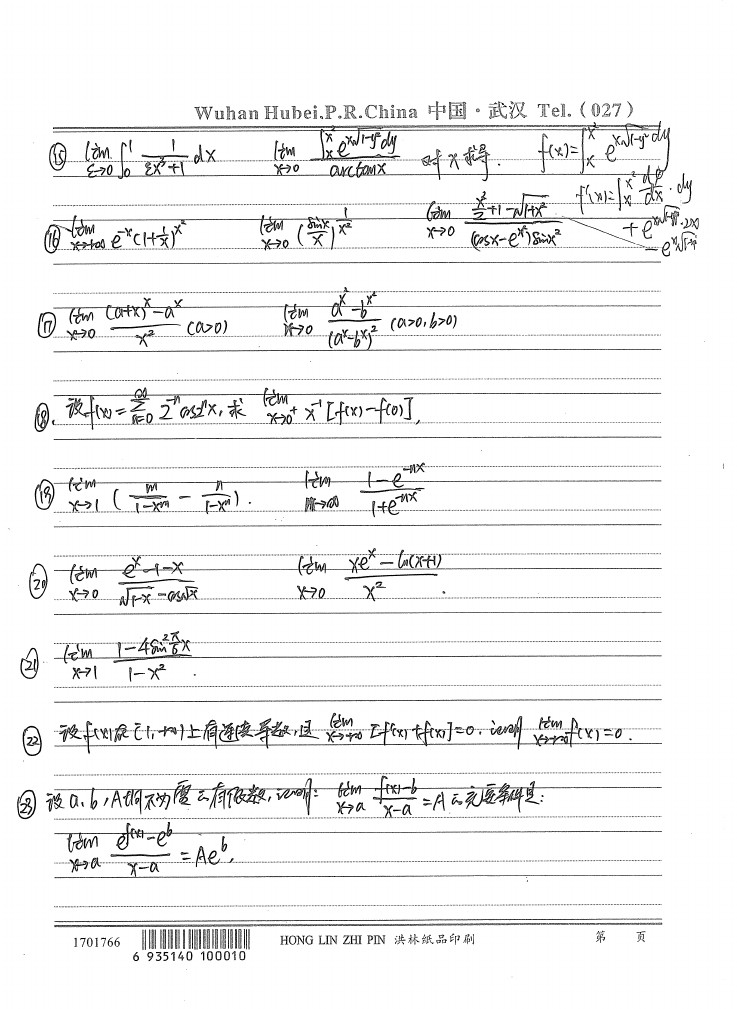 Wuhan Hubei.P.R.China 中国·武汉 Tel.(027)
⑮ lim_{ε→0} ∫_0^1 1/(εx³+1) dx   lim_{x→0} ∫_x^{x²} e^{x√(1-y²)}dy / arctanx   对x求导.   f(x)=∫_x^{x²} e^{x√(1-y²)}dy
f'(x)=∫_x^{x²} de/dx · dy
⑯ lim_{x→+∞} e^{-x}(1+1/x)^{x²}   lim_{x→0} (sinx/x)^{1/x²}   lim_{x→0} (x²/2+1-√(1+x²))/((cosx-e^{x²})sinx²)
⑰ lim_{x→0} ((a+x)^x-a^x)/x² (a>0)   lim_{x→0} (a^{x²}-b^{x²})/(a^x-b^x)² (a>0,b>0)
⑱. 设f(x)=∑_{n=0}^∞ 2^{-n}cos2^n x, 求 lim_{x→0⁺} x^{-1}[f(x)-f(0)],
⑲ lim_{x→1} (m/(1-x^m) - n/(1-x^n)).   lim_{n→∞} (1-e^{-nx})/(1+e^{-nx})
⑳ lim_{x→0} (e^x-1-x)/(√(1-x)-cos√x)   lim_{x→0} (xe^x-ln(x+1))/x² .
㉑ lim_{x→1} (1-4sin²(π/6)x)/(1-x²).
㉒ 设f(x)在[1,+∞)上有连续导数,且 lim_{x→+∞} [f'(x)+f(x)]=0. 证明 lim_{x→+∞} f(x)=0.
㉓ 设a,b,A均不为零的有限数,证明: lim_{x→a} (f(x)-b)/(x-a)=A的充要条件是:
lim_{x→a} (e^{f(x)}-e^b)/(x-a)=Ae^b.
1701766 6 935140 100010 HONG LIN ZHI PIN 洪林纸品印刷 第 页